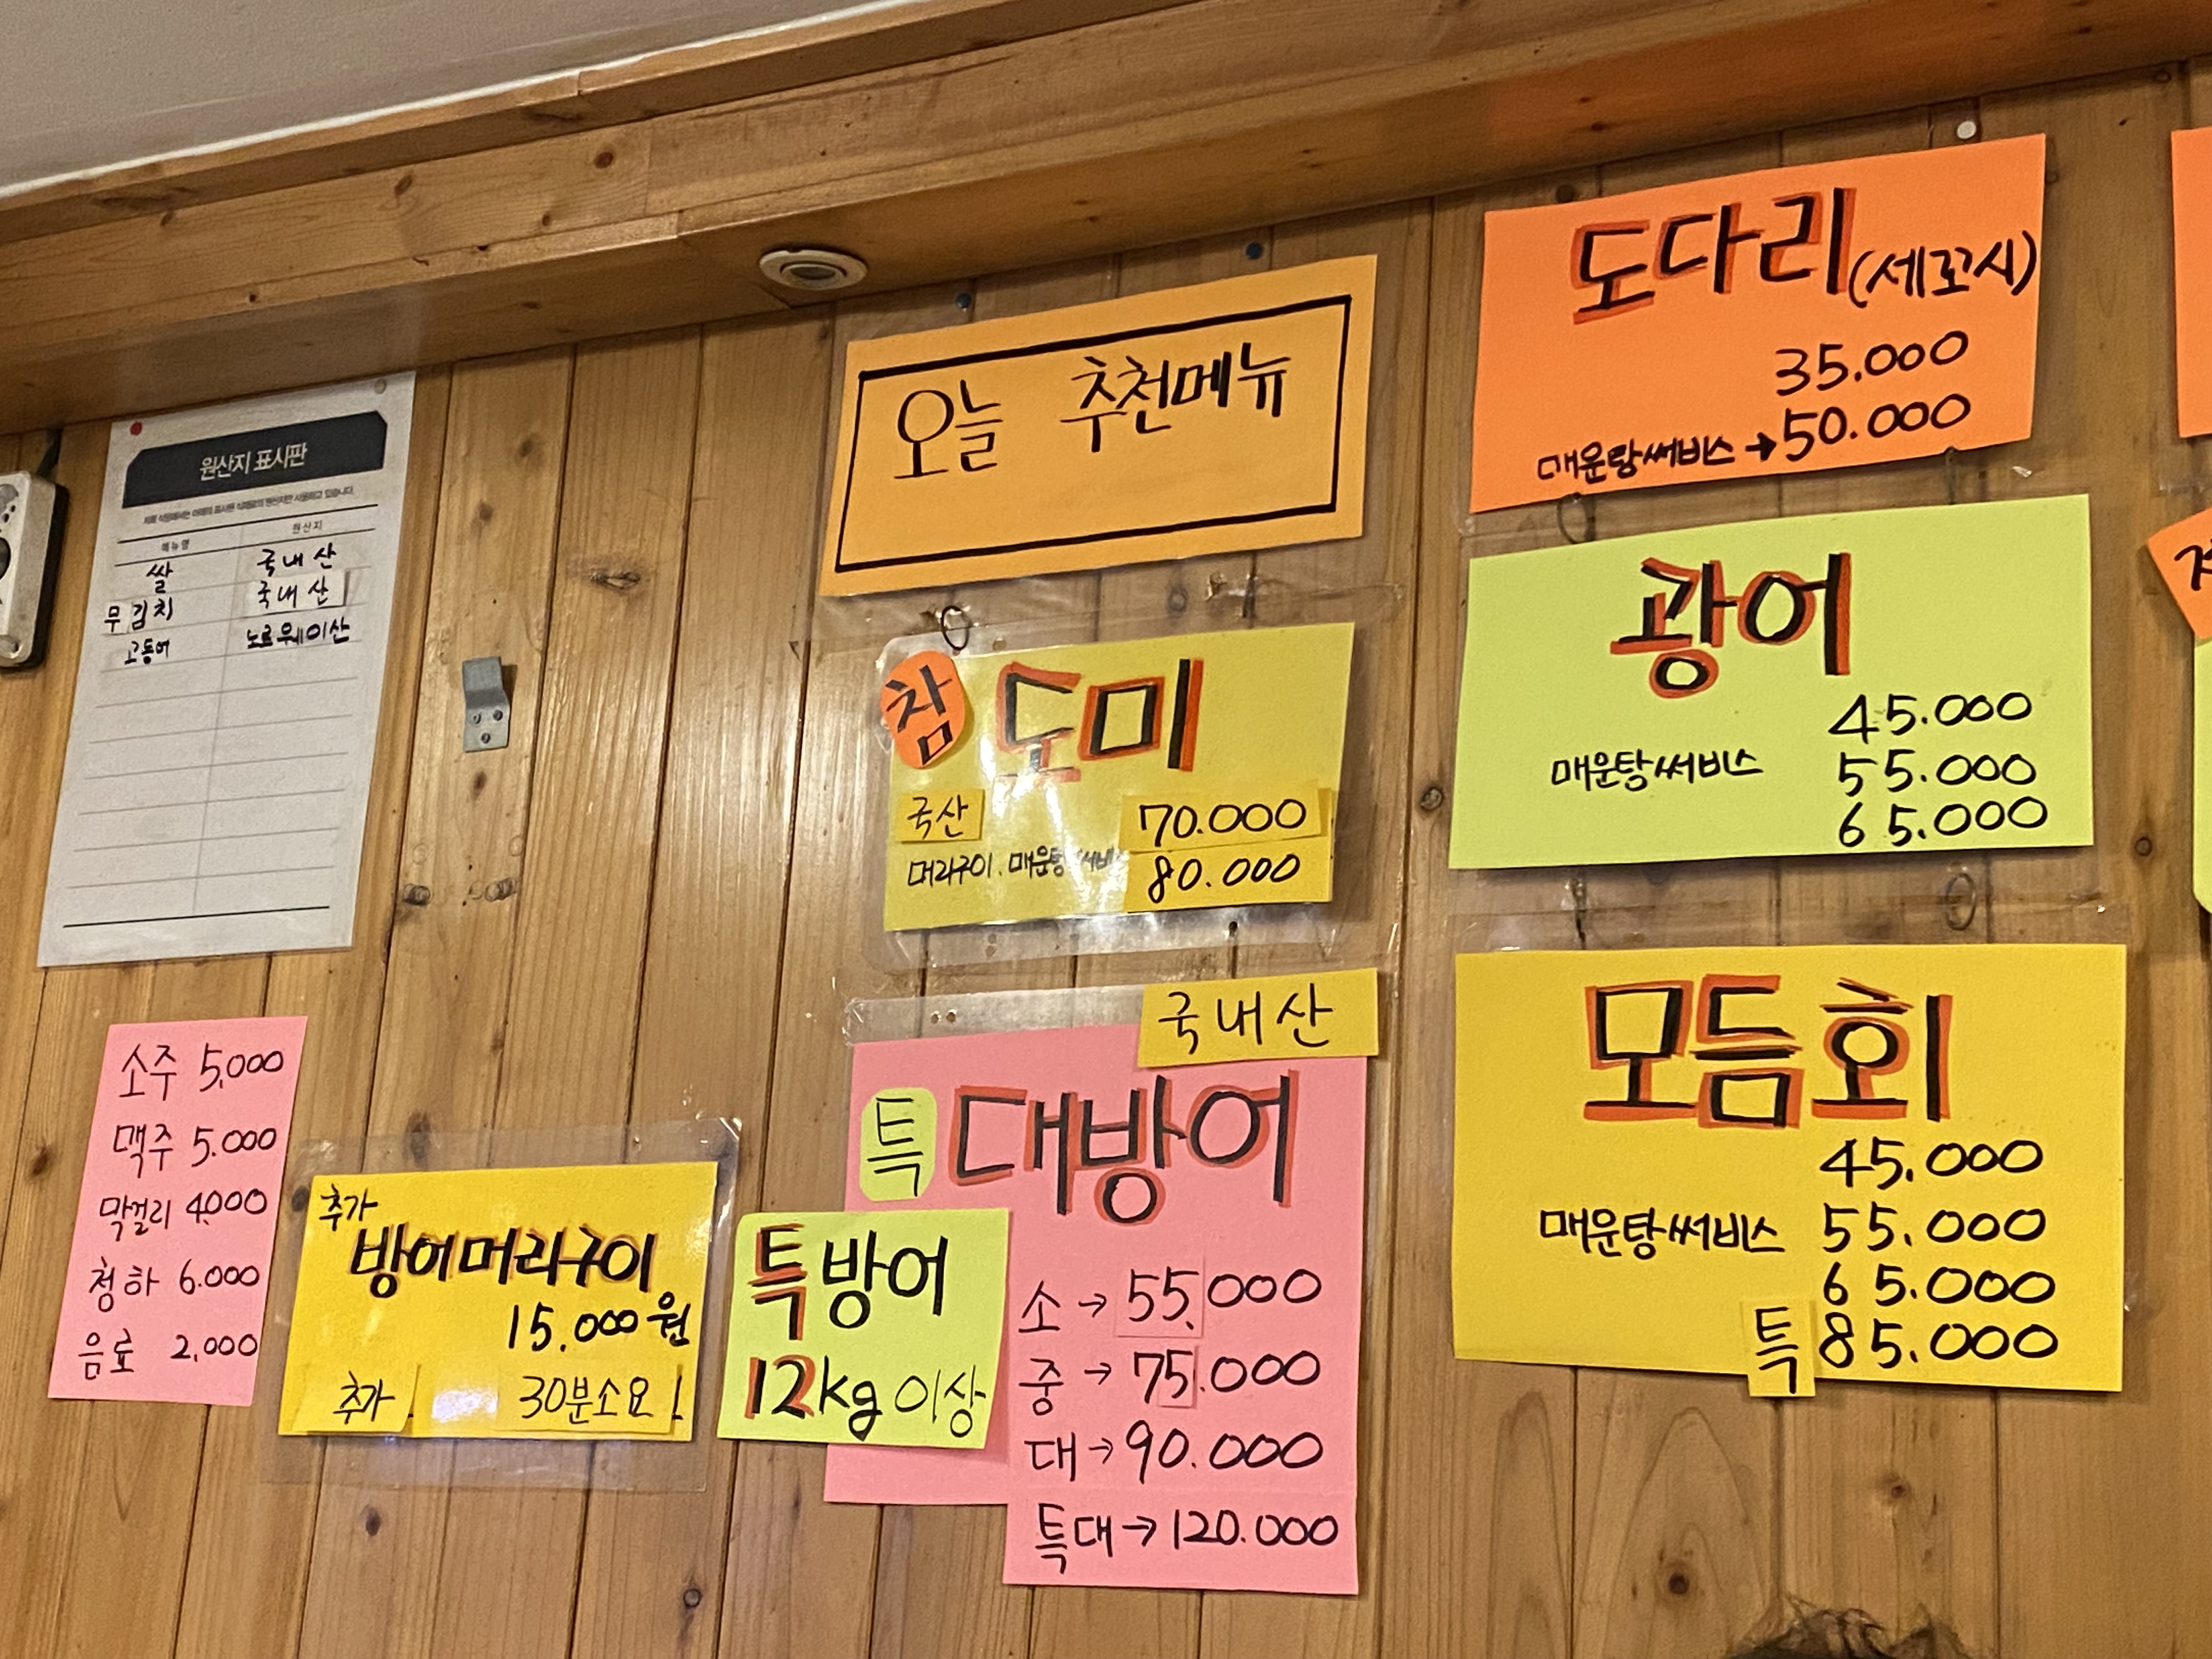 원산지 표시판
메뉴명 원산지
쌀 국내산
무김치 국내산
고등어 노르웨이산
소주 5,000
맥주 5.000
막걸리 4.000
청하 6.000
음료 2,000
추가
방어머리구이
15.000원
추가 30분소요!
오늘 추천메뉴
참 도미
국산 70.000
머리구이. 매운탕써비스 80.000
국내산
특 대방어
특방어
12kg 이상
소→55.000
중→75.000
대→90.000
특대→120.000
도다리(세꼬시)
35.000
매운탕써비스→50.000
광어
45.000
매운탕써비스 55.000
65.000
모듬회
45.000
매운탕써비스 55.000
65.000
특 85.000